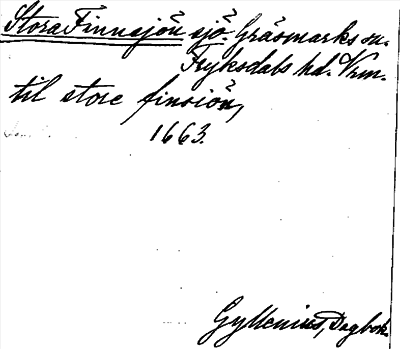 Stora Finnsjön sjö. Gräsmarks sn.
Fryksdals hd. Vrm.
til store finsiön,
1663.
Gyllenius, Dagbok.